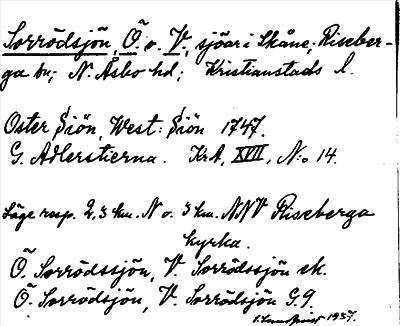 Sorrödsjön, Ö. o. V., sjöar i Skåne; Riseber-
ga sn; N. Åsbo hd; Kristianstads l.
Öster Siön, West: Siön 1747.
G. Adlerstierna. KrA, XVII, N:o 14.
Läge resp. 2,3 km. N o. 3 km. NNV Riseberga
kyrka.
Ö. Sorrödssjön, V. Sorrödssjön ek.
Ö. Sorrödsjön, V. Sorrödsjön G. 9.
1937.